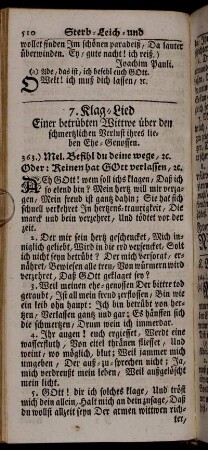 510 Sterb-Leich- und
wollest finden Im schönen paradeiß, Da lauter
überwinden. Ey, gute nacht! ich reiß.)
Joachim Pauli.
(1) Ade, das ist, ich befehl euch GOtt.
O Welt! ich muß dich lassen, ꝛc.
7. Klag-Lied
Einer betrübten Wittwe über den
schmertzlichen Verlust ihres lie-
ben Ehe-Genossen.
363.) Mel. Befihl du deine wege, ꝛc.
Oder: Keinen hat GOtt verlassen, ꝛc.
ACh GOtt! wem soll ichs klagen, Daß ich
so elend bin? Mein hertz will mir verza-
gen, Mein freud ist gantz dahin; Sie hat sich
schnell verkehret In hertzens-traurigkeit, Die
marck und bein verzehret, Und tödtet vor der
zeit.
2. Der mir sein hertz geschencket, Mich in-
niglich geliebt, Wird in die erd versencket, Solt
ich nicht seyn betrübt? Der mich versorgt, er-
nähret, Bewiesen alle treu, Von würmern wird
verzehret, Daß GOtt geklaget sey?
3. Weil meinen ehe-genossen Der bitter tod
geraubt, Ist all mein freud verflossen, Bin wie
ein leib ohn haupt: Ich bin betrübt von her-
tzen, Verlassen gantz und gar; Es häuffen sich
die schmertzen, Drum wein ich immerdar.
4. Ihr augen! euch ergiesset, Werdt eine
wasserfluth, Von eitel thränen fliesset, Und
weint, wo möglich, blut; Weil jammer mich
umgeben, Der aus-zu-sprechen nicht; So,
mich verdreust mein leben, Weil außgelöscht
mein licht.
5. GOtt! dir ich solches klage, Und tröst
mich dein allein, Halt mich an dein zusage, Daß
du wollst allzeit seyn Der armen wittwen rich-
ter,